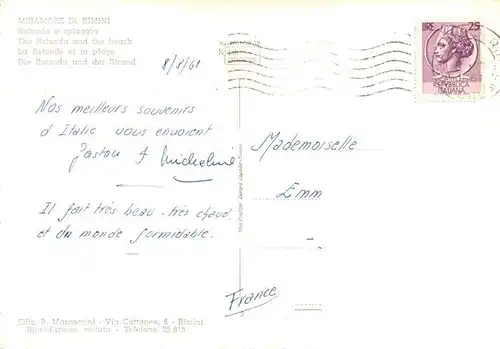 MIRAMARE DI RIMINI
Rotonda e spiaggia
The Rotonda and the beach
La Rotonde et la plage
Die Rotonda und der Strand
8/8/61
LIRE 25
REPVBBLICA
ITALIANA
Nos meilleurs souvenirs
d'Italie vous envoient
Gaston & Micheline
Il fait très beau - très chaud
et du monde formidable.
Mademoiselle
Emm
France
Ediz. B. Mazzacurri - Via Cattaneo, 6 - Rimini
Riproduzione vietata - Telefono